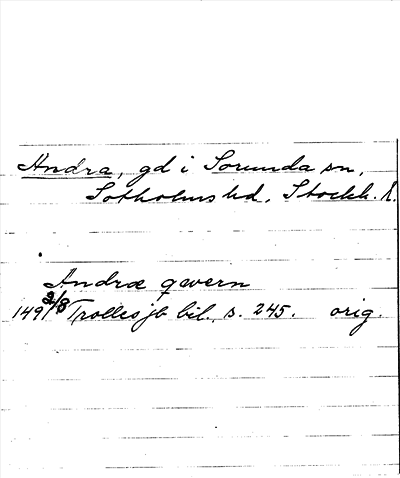 Andra, gd i Sorunda sn,
Sotholms hd, Stockh. l.
Andræ qwern
1491 2/8 Trolles jb bil., s. 245. orig.